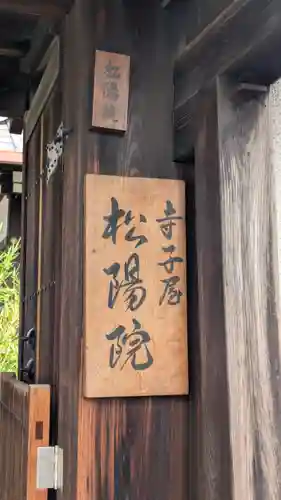 松陽院
寺子屋
松陽院